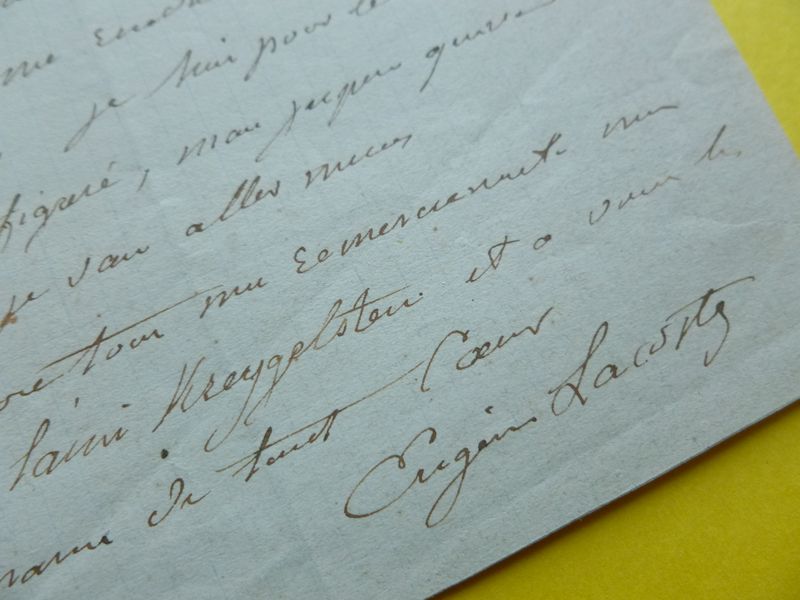 je suis pour le
figuré, mais jusque
je vais aller mieux
tous mes remerciements
l'ami Kreygelsten et a vous les
de tout Cœur
Eugène Lacoste